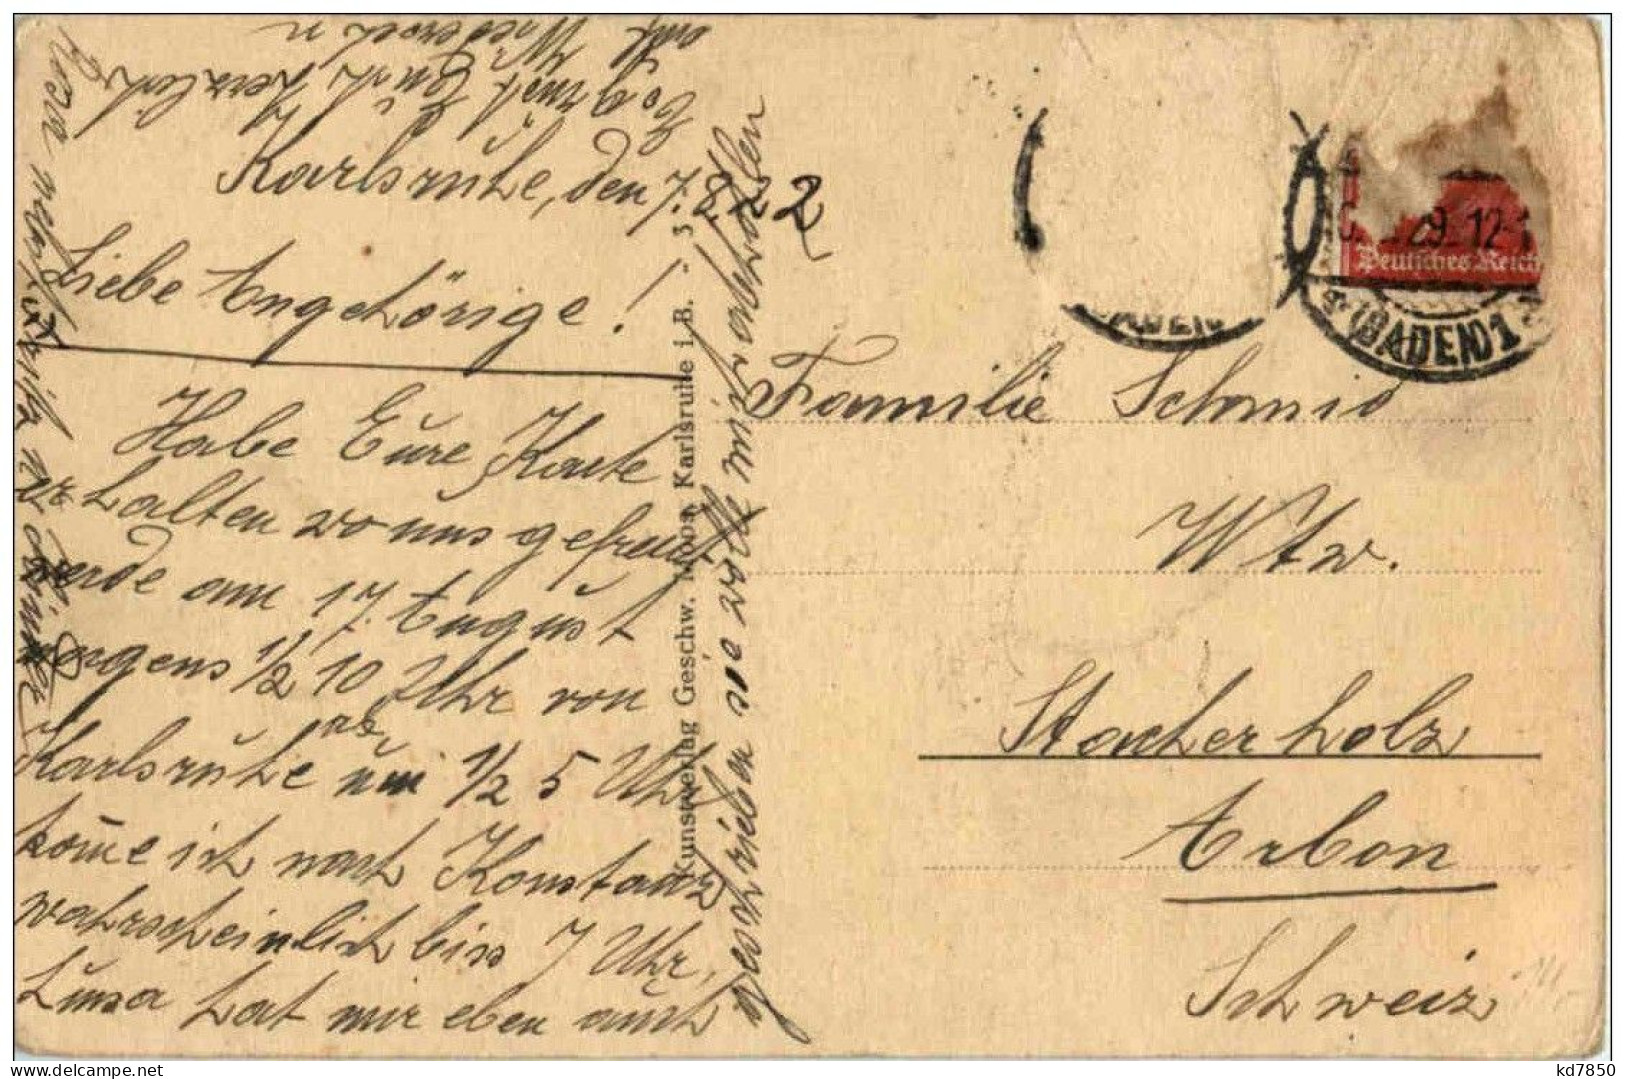 Karlsruhe, den 7.8.22
Liebe Angehörige!
Habe Eure Karte
erhalten wo uns gefreut
werde am 17. August
morgens 1/2 10 Uhr von
Karlsruhe um 1/2 5 Uhr
kome ich nach Konstanz
wahrscheinlich bis 7 Uhr,
Luisa hat mir eben auch
geschrieben sie wolle mich abholen
Euch herzlich
auf Wiedersehn
Kunstverlag Geschw. Moos, Karlsruhe i. B. - 3
Familie Schmid
Wtw.
Stacherholz
Arbon
Schweiz
29. 12-1
Deutsches Reich
(BADEN) 1
kd7850